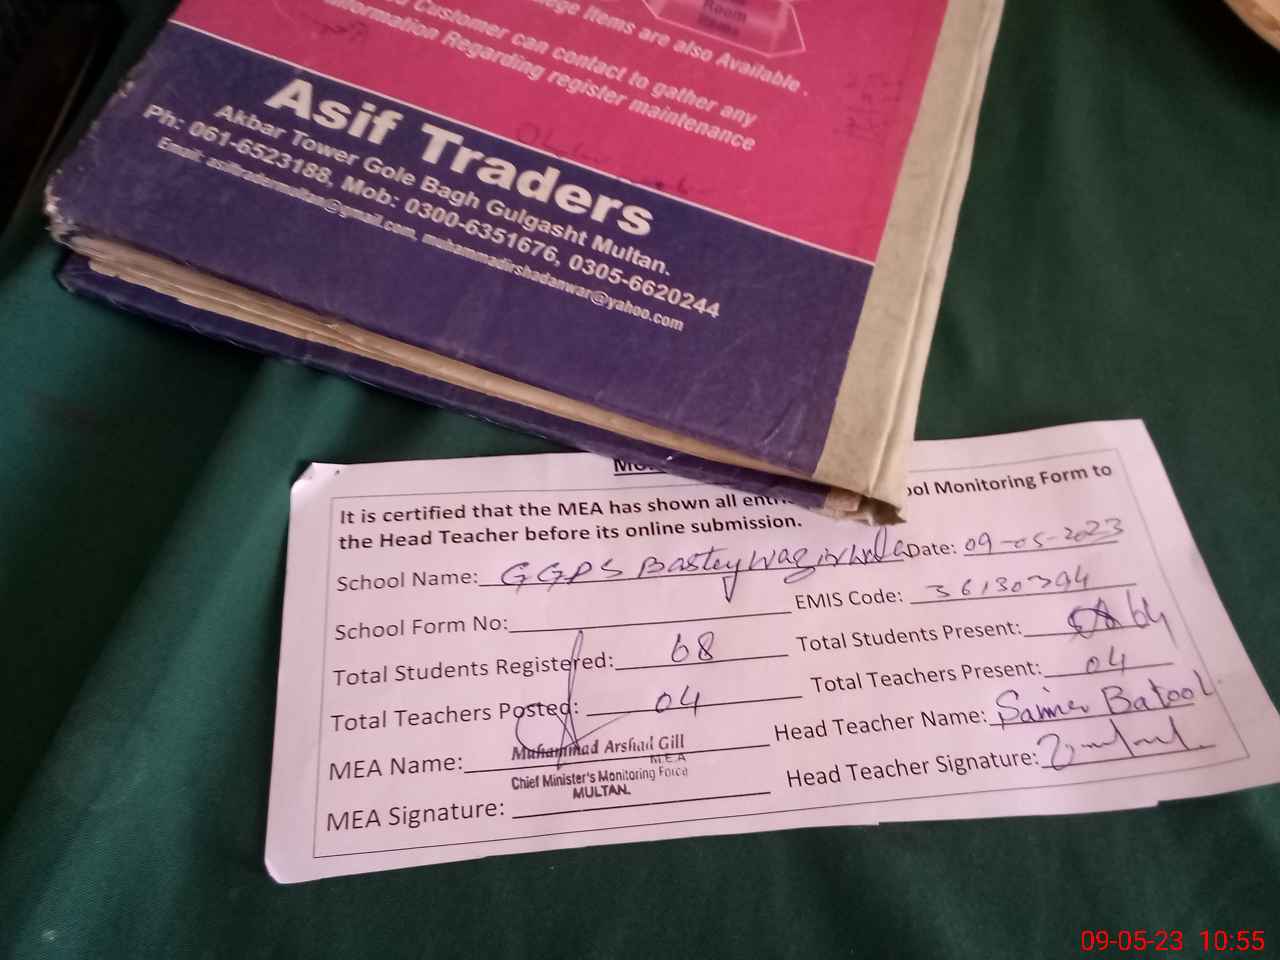 Room
Items are also Available .
Customer can contact to gather any
information Regarding register maintenance
Asif Traders
Akbar Tower Gole Bagh Gulgasht Multan.
Ph: 061-6523188, Mob: 0300-6351676, 0305-6620244
Email: asiftradermultan@gmail.com, muhammadirshadanwar@yahoo.com
It is certified that the MEA has shown all Monitoring Form to
the Head Teacher before its online submission.
School Name: GGPS Basty Date: 09-05-2023
School Form No: EMIS Code: 36130394
Total Students Registered: 68 Total Students Present: 64
Total Teachers Posted: 04 Total Teachers Present: 04
MEA Name: Muhammad Arshad Gill Head Teacher Name: Batool
M.E.A
Chief Minister's Monitoring Force
MULTAN.
MEA Signature: Head Teacher Signature:
09-05-23 10:55